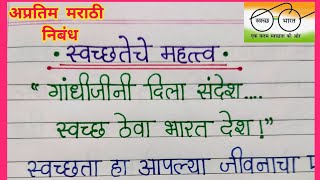 अप्रतिम मराठी
निबंध
स्वच्छ भारत
एक कदम स्वच्छता की ओर
• स्वच्छतेचे महत्त्व •
“ गांधीजींनी दिला संदेश....
स्वच्छ ठेवा भारत देश ! ”
स्वच्छता हा आपल्या जीवनाचा